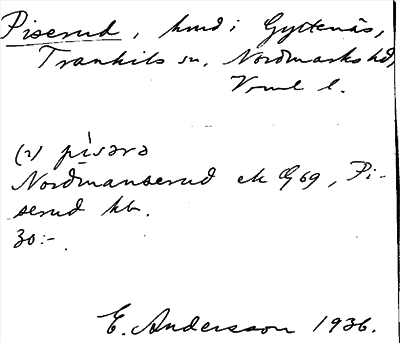 Piserud, hmd i Gyltenäs,
Trankils sn, Nordmarks hd,
Vrml l.
(2) pìsərə
Nordmanserud ek G69, Pi-
serud kb.
30:-
E. Andersson 1936.